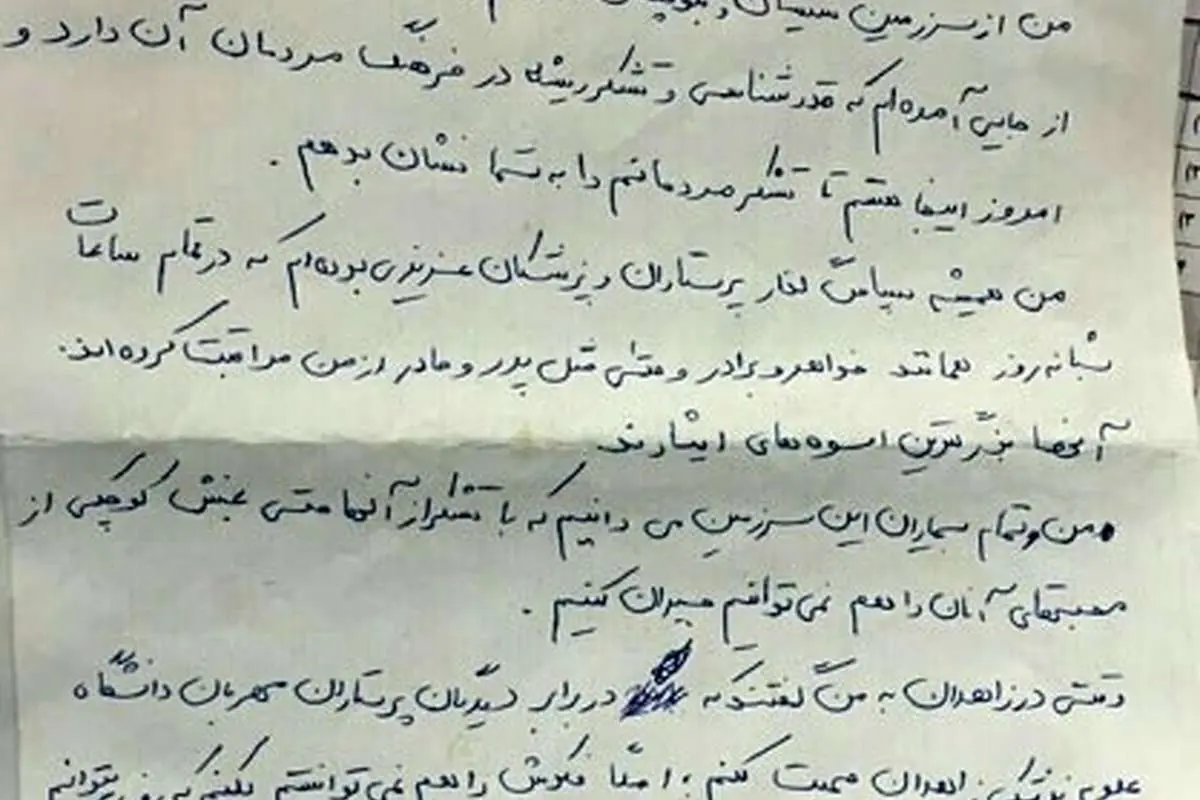 من از سرزمین سیستان و بلوچستان
از جایی آمده‌ام که قدرشناسی و تشکر ریشه در فرهنگ مردمان آن دارد و
امروز اینجا هستم تا تشکر مردمانم را به شما نشان بدهم .
من همیشه سپاس‌گذار پرستاران و پزشکان عزیزی بوده‌ام که در تمام ساعات
شبانه‌روز همانند خواهر و برادر و حتی مثل پدر و مادر از من مراقبت کرده‌اند.
آنها بزرگترین اسوه‌های ایثارند.
من و تمام بیماران این سرزمین می دانیم که با تشکر از آنها حتی بخش کوچکی از
محبتهای آنان را هم نمی‌توانیم جبران کنیم .
وقتی در زاهدان به من گفتند که در برابر دیگران پرستاران مهربان دانشگاه
علوم پزشکی زاهدان صحبت کنم ، اصلاً فکرش را هم نمی توانستم بکنم که روزی بتوانم